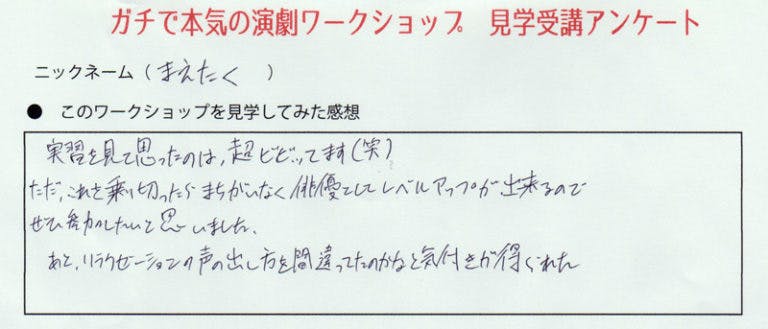 ガチで本気の演劇ワークショップ 見学受講アンケート
ニックネーム（まえたく ）
● このワークショップを見学してみた感想
実習を見て思ったのは，超ビビってます（笑）
ただ，これを乗り切ったらまちがいなく俳優としてレベルアップが出来るので
ぜひ参加したいと思いました．
あと，リラクゼーションの声の出し方を間違ってたのかなと気付きが得られた